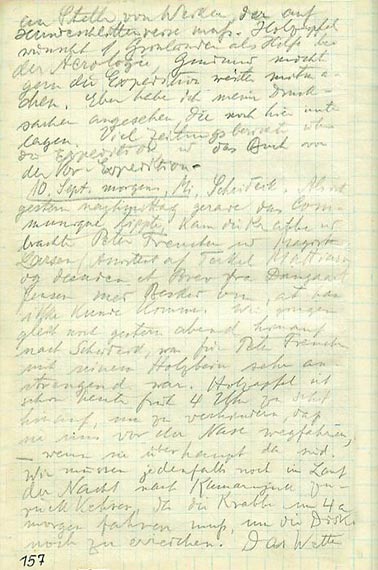 an Stelle von Weiken, der auf
Hundeschlittenreise muß. Holzapfel
wünscht 1 Grönländer als Hilfe bei
der Aerologie, Gudmund möchte
gern die Expedition weiter mitma-
chen. Eben habe ich meine Druck-
sachen angesehen, die noch hier unten
lagen. Viel Zeitungsberichte über
die Expedition u das Buch von
der Vor-Expedition.
10. Sept. morgens, Mi, Scheideck. Als ich
gestern nachmittag gerade das Com-
muniqué tippte, kam die Krabbe u
brachte Peter Freuchen u Magister
Larsen,
og desuden et Brev fra Daugaard
Jensen med Besked om, at han
ikke kunde komme. Wir gingen
gleich noch gestern abend hinauf
nach Scheideck, was für Peter Freuchen
mit seinem Holzbein sehr an-
strengend war. Holzapfel ist
schon heute früh 4 Uhr zu
hinauf, um zu verhindern daß
sie uns vor der Nase wegfahren,
– wenn sie überhaupt da sind.
Wir müssen jedenfalls noch im Lauf
der Nacht nach Kamarujuk zu-
rückkehren, da die Krabbe um 4 a
morgen fahren muß, um die Disko
noch zu erreichen. Das Wetter
157